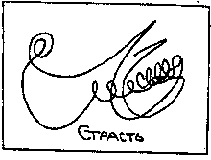 Страсть